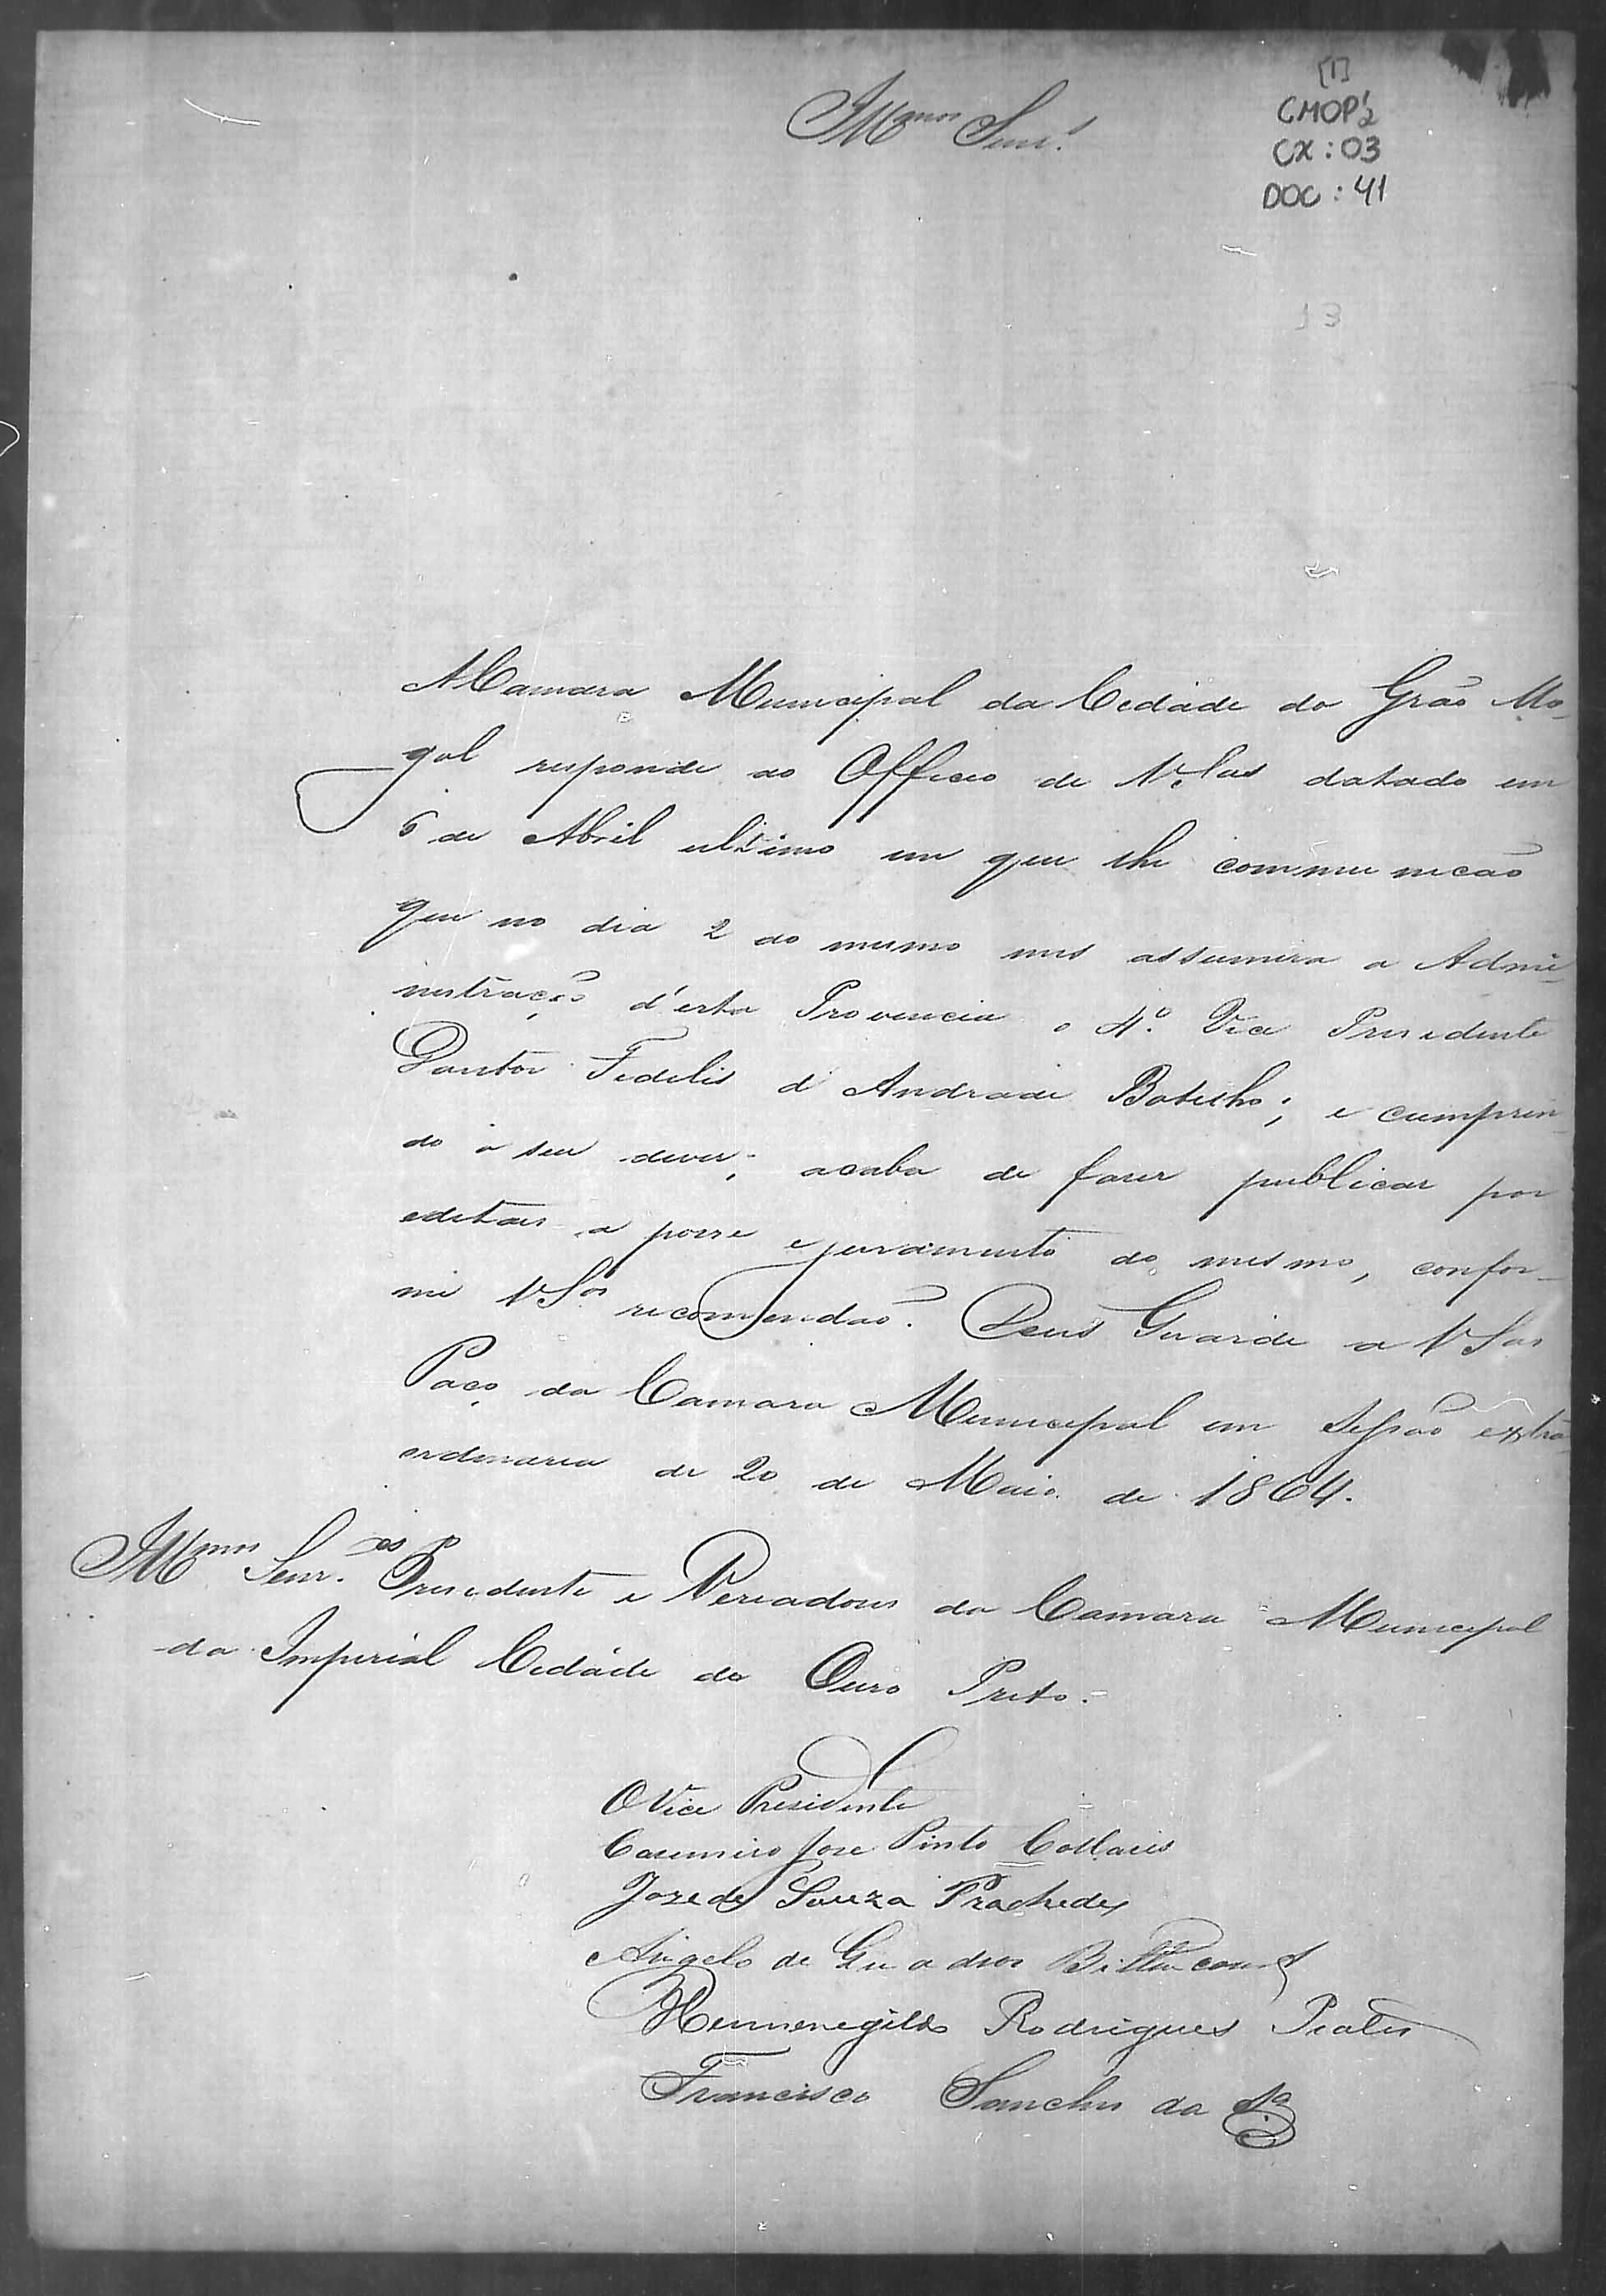 [1]
CMOP½
CX: 03
DOC: 41
Illmos Senrs.
13
A Camara Municipal da Cidade do Grão Mo-
gol responde ao Officio de V.Sas datado em
6 de Abril ultimo em que lhe communicão
que no dia 2 do mesmo mes assumira a Admi-
nistração d'esta Provincia o 4º. Vice Presidente
Doutor Fidelis d'Andrade Botelho; e cumprin-
do o seu dever; acaba de faser publicar por
editaes a posse e juramento do mesmo, confor-
me VSas recommendão. Deus Guarde a VSas
Paço da Camara Municipal em Sessão extra-
ordinaria de 20 de Maio de 1864.
Illmos Senr.es Presidente e Vereadores da Camara Municipal
da Imperial Cidade do Ouro Preto.
O Vice Presidente
Casimiro Jose Pinto Collares
Joze de Souza Prachedes
Angelo de Quadros Bittencourt
Hermenegildo Rodrigues Prates
Francisco Sanches da Sa